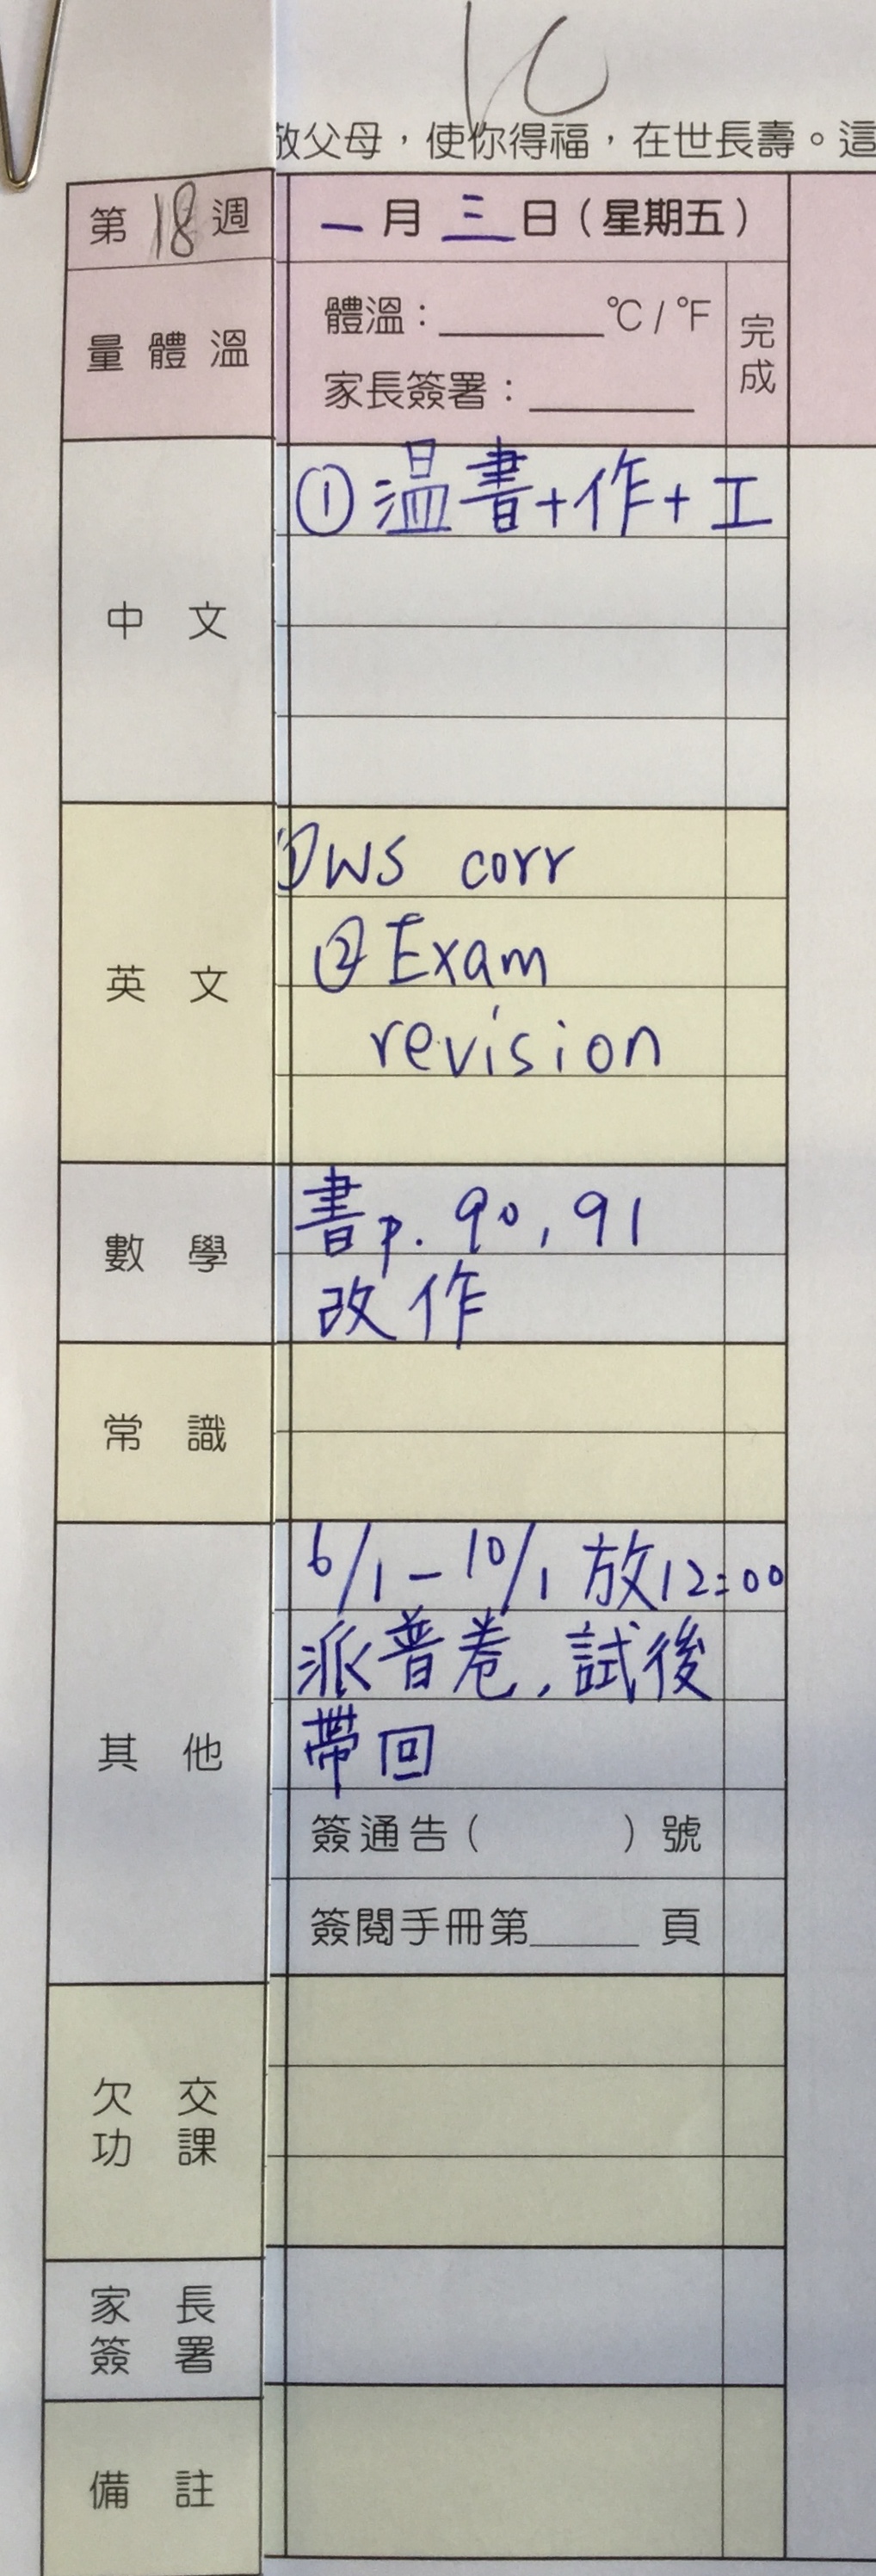 1C
敬父母，使你得福，在世長壽。這
第18週 一月三日（星期五）
量體溫 體溫：______℃/℉ 完成
家長簽署：______
中文 ①温書+作+工
英文 ①WS corr
②Exam
revision
數學 書p. 90, 91
改作
常識
其他 6/1-10/1 放12:00
派普卷,試後
帶回
簽通告（ ）號
簽閱手冊第____頁
欠交
功課
家長
簽署
備註